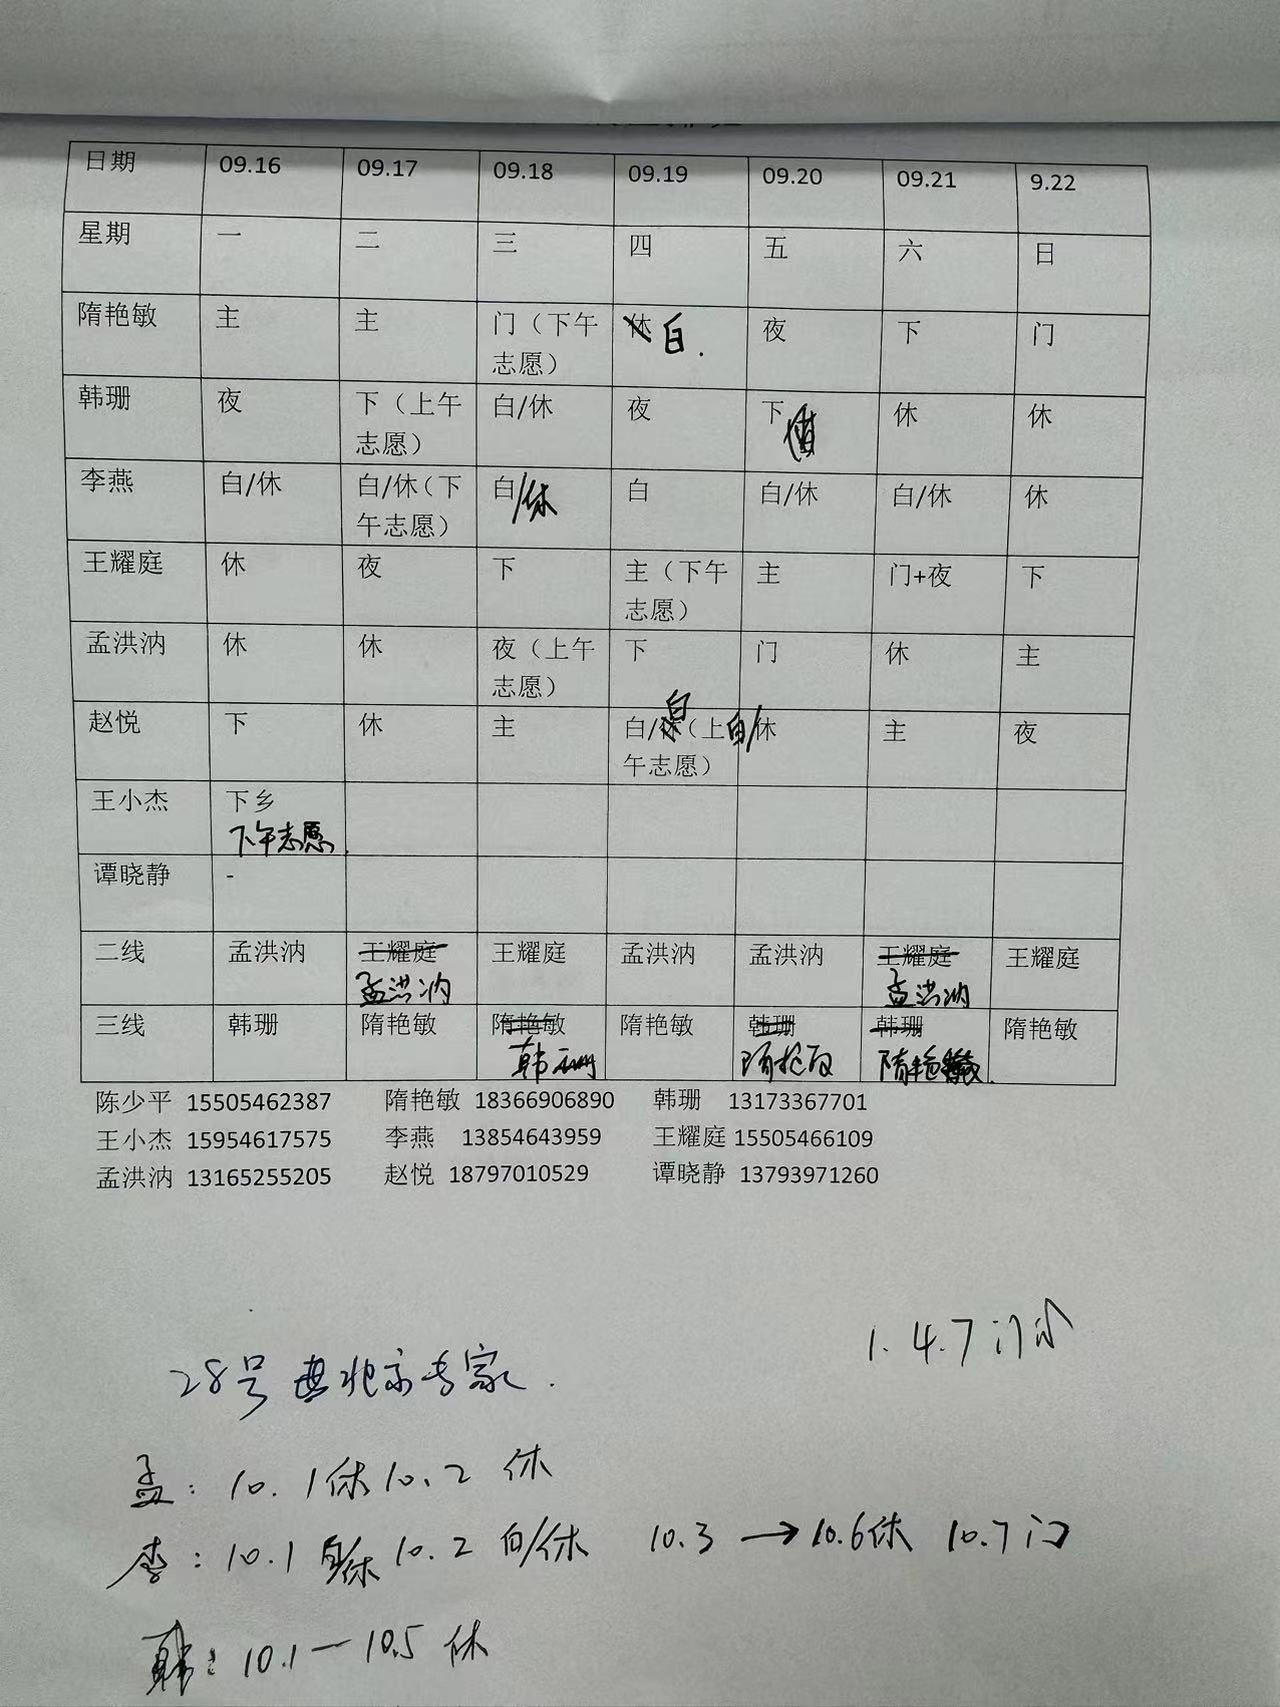 日期 09.16 09.17 09.18 09.19 09.20 09.21 9.22
星期 一 二 三 四 五 六 日
隋艳敏 主 主 门（下午志愿） 休 白. 夜 下 门
韩珊 夜 下（上午志愿） 白/休 夜 下 休 休
李燕 白/休 白/休（下午志愿） 白/休 白 白/休 白/休 休
王耀庭 休 夜 下 主（下午志愿） 主 门+夜 下
孟洪汭 休 休 夜（上午志愿） 下 门 休 主
赵悦 下 休 主 白/休（上午志愿） 白 白/休 主 夜
王小杰 下乡 下午志愿.
谭晓静 -
二线 孟洪汭 王耀庭 孟洪汭 王耀庭 孟洪汭 孟洪汭 王耀庭 孟洪汭 王耀庭
三线 韩珊 隋艳敏 隋艳敏 韩珊 隋艳敏 韩珊 隋艳敏 韩珊 隋艳敏 隋艳敏
陈少平 15505462387 隋艳敏 18366906890 韩珊 13173367701
王小杰 15954617575 李燕 13854643959 王耀庭 15505466109
孟洪汭 13165255205 赵悦 18797010529 谭晓静 13793971260
1. 4. 7 门
28号 北京专家.
孟: 10.1休 10.2 休
李: 10.1 休 10.2 白/休 10.3 → 10.6休 10.7门
韩: 10.1一10.5 休